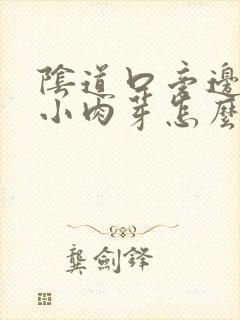 陰道口旁邊
小肉芽怎麼
龔劍鋒